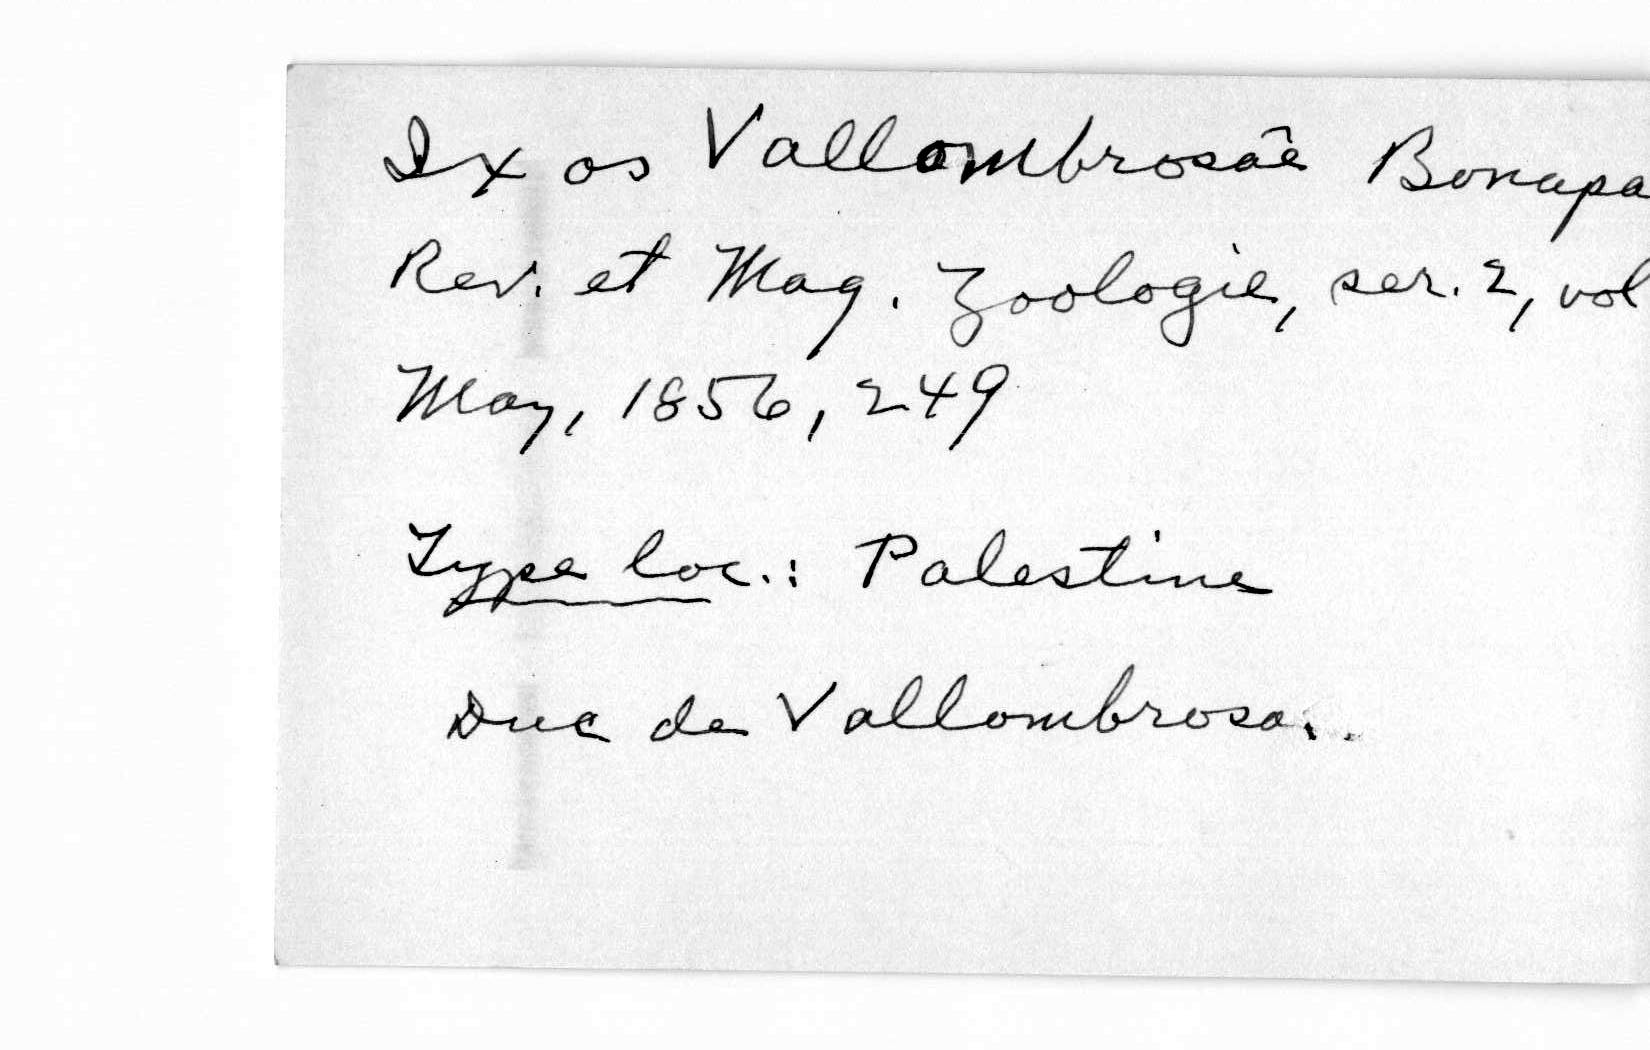 Ixos Vallombrosae Bonapa
Rev. et Mag. Zoologie, ser. 2, vol
May, 1856, 249
Type loc.: Palestine
Duc de Vallombrosa..